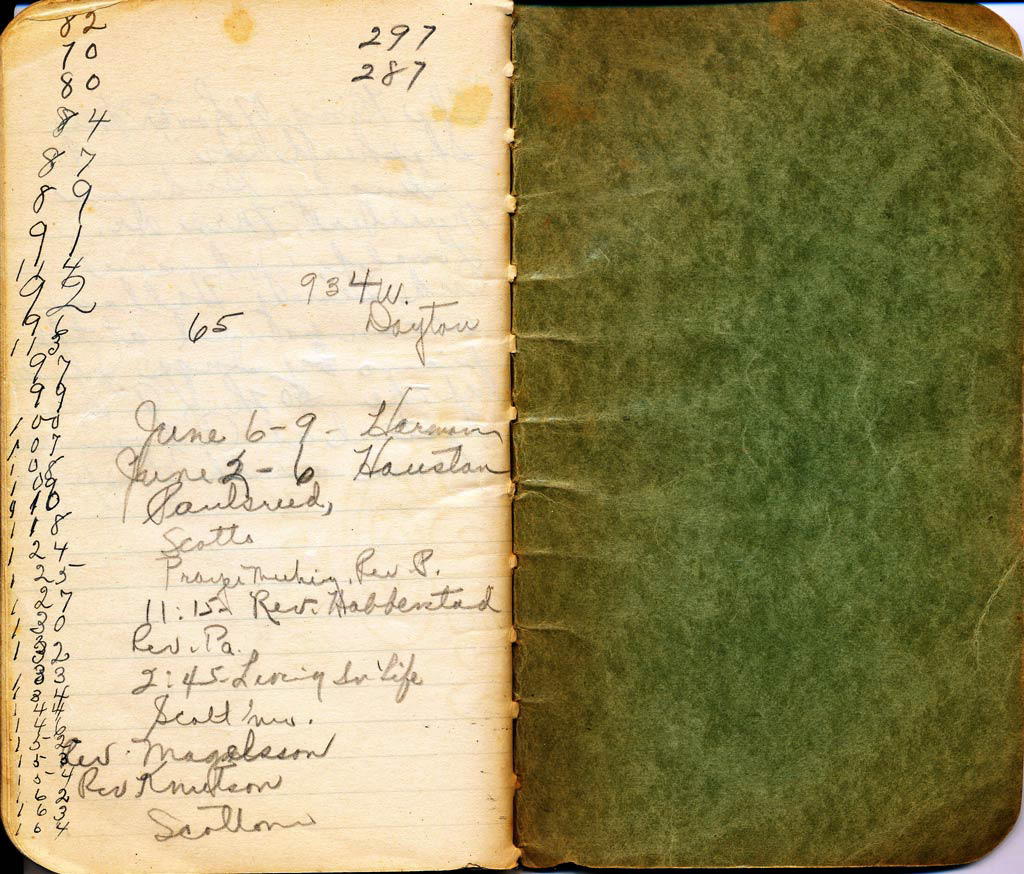 82
70
80
84
87
89
91
114
92
96
113
97
99
100
107
108
109
110
118
124
125
127
130
132
133
134
144
146
152
153
154
162
163
164
297
287
934 W.
Dayton
65
June 6-9- Harmony
June 2-6 Houston
Paulsreed,
Scotts
Prayer Meeting, Rev P.
11:15- Rev. Habberstad
Rev. Pa.
2:45- Living In Life
Scott
Rev. Magelsson
Rev Knutson